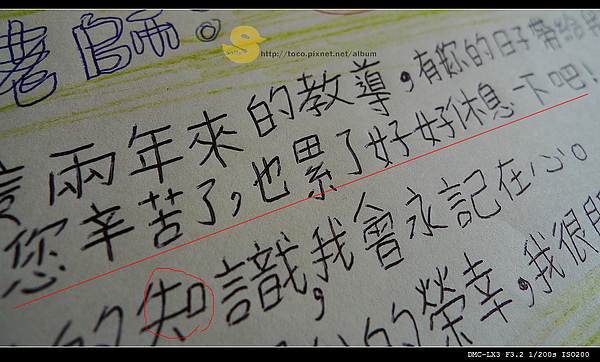 老師。
http://toco.pixnet.net/album
這兩年來的教導，有妳的日子帶給我
您辛苦了，也累了好好休息一下吧！
的知識，我會永記在心。
的榮幸，我很開
DMC-LX3 F3.2 1/200s ISO200